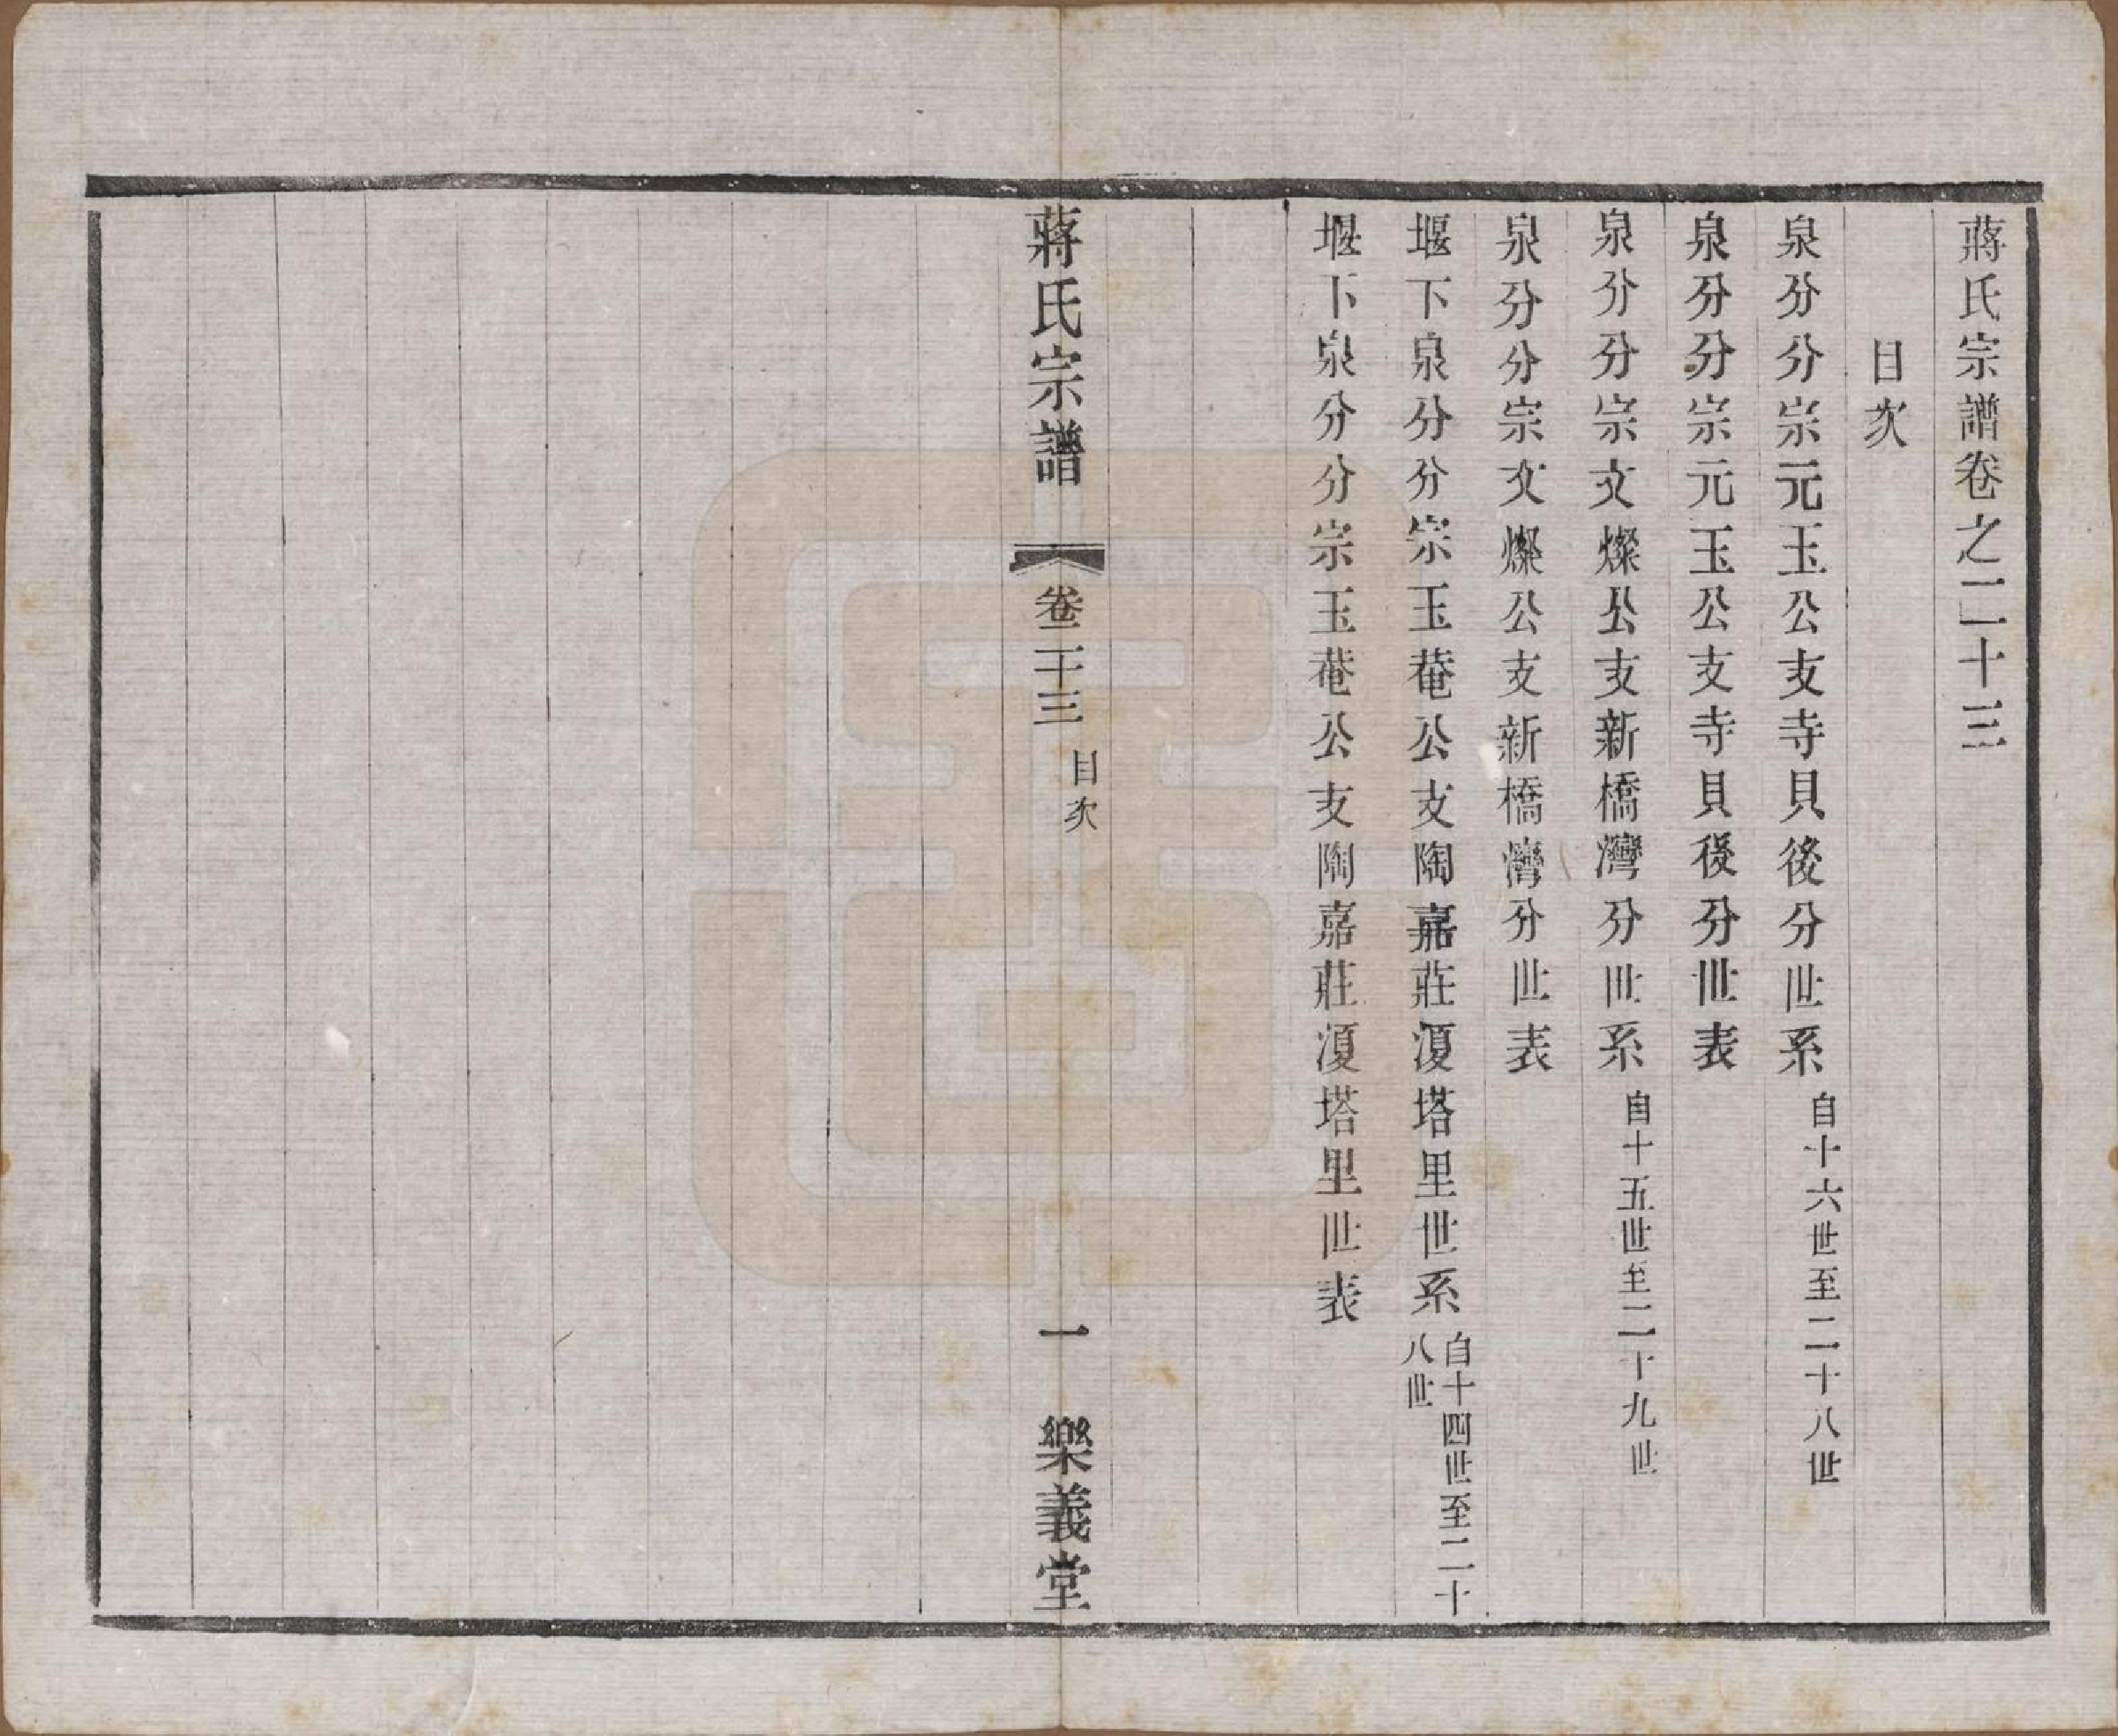 蔣氏宗譜卷之二十三
目次
泉分分宗元玉公支寺貝後分世系自十六世至二十八世
泉分分宗元玉公支寺貝後分世表
泉分分宗文燦公支新橋灣分世系自十五世至二十九世
泉分分宗文燦公支新橋灣分世表
堰下泉分分宗玉菴公支陶嘉莊濵塔里世系自十四世至二十
八世
堰下泉分分宗玉菴公支陶嘉莊濵塔里世表
蔣氏宗譜 卷二十三 目次 一 樂義堂